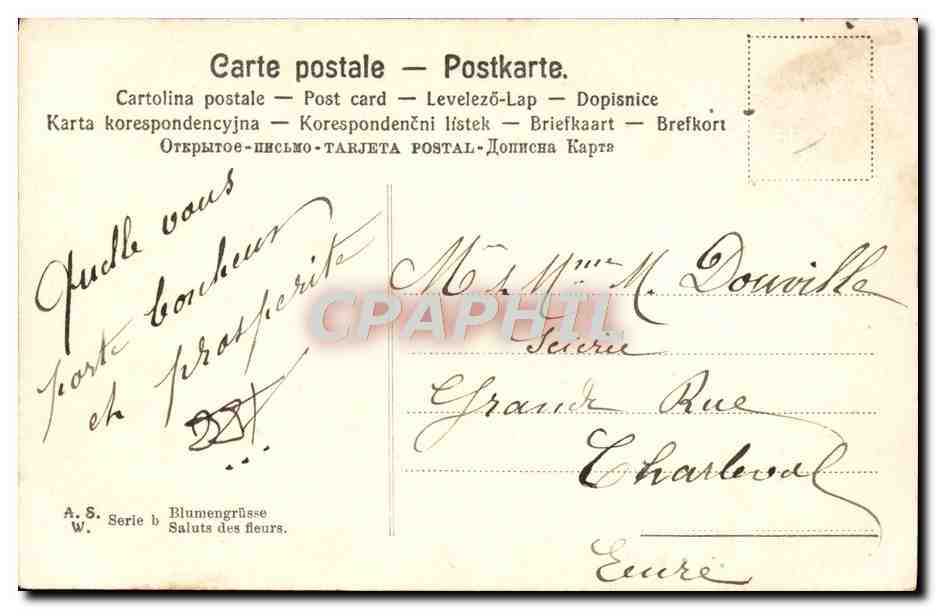 Carte postale — Postkarte.
Cartolina postale — Post card — Levelező-Lap — Dopisnice
Karta korespondencyjna — Korespondenční lístek — Briefkaart — Brefkort
Открытое-письмо - TARJETA POSTAL - Дописна Карта
Quelle vous
porte bonheur
et prosperite
Mr & Mme M. Douville
Scierie
Grande Rue
Charleval
Eure
CPAPHIL
A. S. W. Serie b Blumengrüsse
Saluts des fleurs.